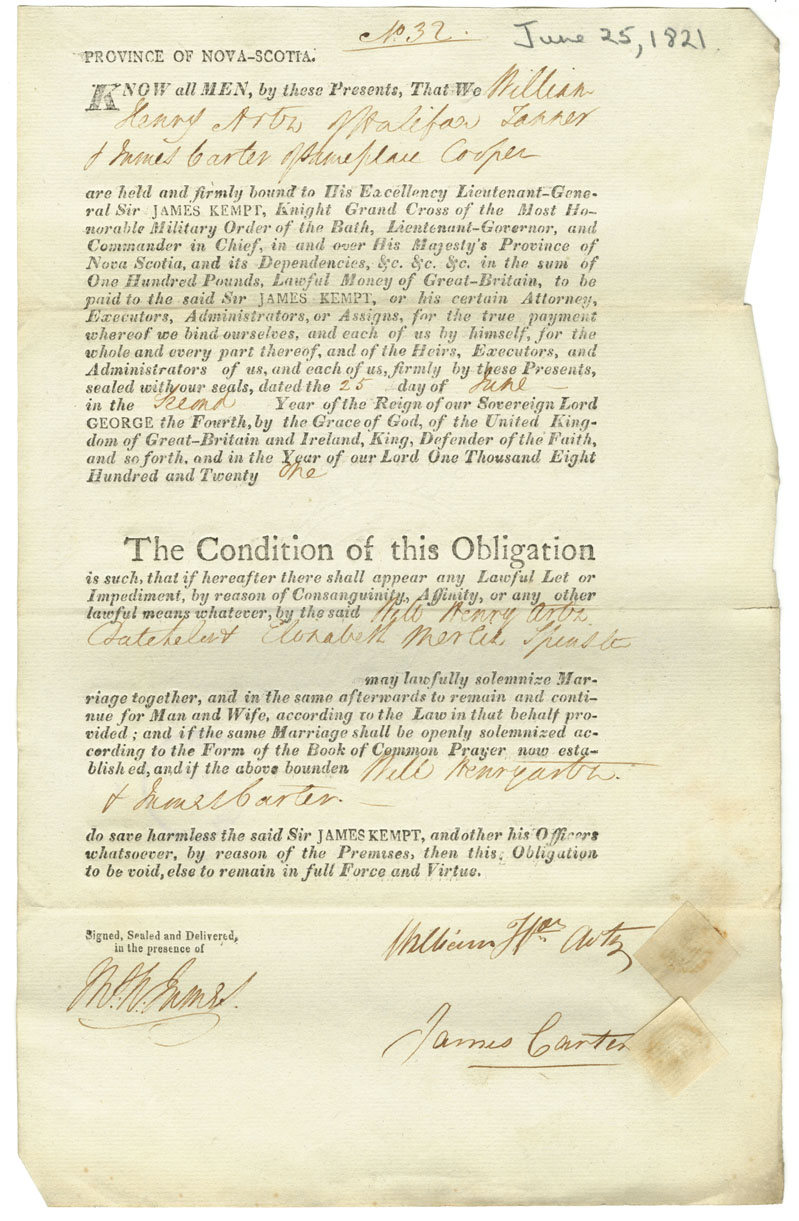 No 32.
June 25, 1821
PROVINCE OF NOVA-SCOTIA.
KNOW all MEN, by these Presents, That We William
Henry Artz of Halifax Tanner
& James Carter of same place Cooper
are held and firmly bound to His Excellency Lieutenant-Gene-
ral Sir JAMES KEMPT, Knight Grand Cross of the Most Ho-
norable Military Order of the Bath, Lieutenant-Governor, and
Commander in Chief, in and over His Majesty's Province of
Nova Scotia, and its Dependencies, &c. &c. &c. in the sum of
One Hundred Pounds, Lawful Money of Great-Britain, to be
paid to the said Sir JAMES KEMPT, or his certain Attorney,
Executors, Administrators, or Assigns, for the true payment
whereof we bind ourselves, and each of us by himself, for the
whole and every part thereof, and of the Heirs, Executors, and
Administrators of us, and each of us, firmly by these Presents,
sealed with our seals, dated the 25 day of June
in the Second Year of the Reign of our Sovereign Lord
GEORGE the Fourth, by the Grace of God, of the United King-
dom of Great-Britain and Ireland, King, Defender of the Faith,
and so forth, and in the Year of our Lord One Thousand Eight
Hundred and Twenty One
The Condition of this Obligation
is such, that if hereafter there shall appear any Lawful Let or
Impediment, by reason of Consanguinity, Affinity, or any other
lawful means whatever, by the said Will Henry Artz
Batchelor & Elizabeth Spinster
may lawfully solemnize Mar-
riage together, and in the same afterwards to remain and conti-
nue for Man and Wife, according to the Law in that behalf pro-
vided; and if the same Marriage shall be openly solemnized ac-
cording to the Form of the Book of Common Prayer now esta-
blished, and if the above bounden Will Henry Artz
& James Carter.
do save harmless the said Sir JAMES KEMPT, and other his Officers
whatsoever, by reason of the Premises, then this Obligation
to be void, else to remain in full Force and Virtue.
Signed, Sealed and Delivered,
in the presence of
William Hy Artz
James Carter